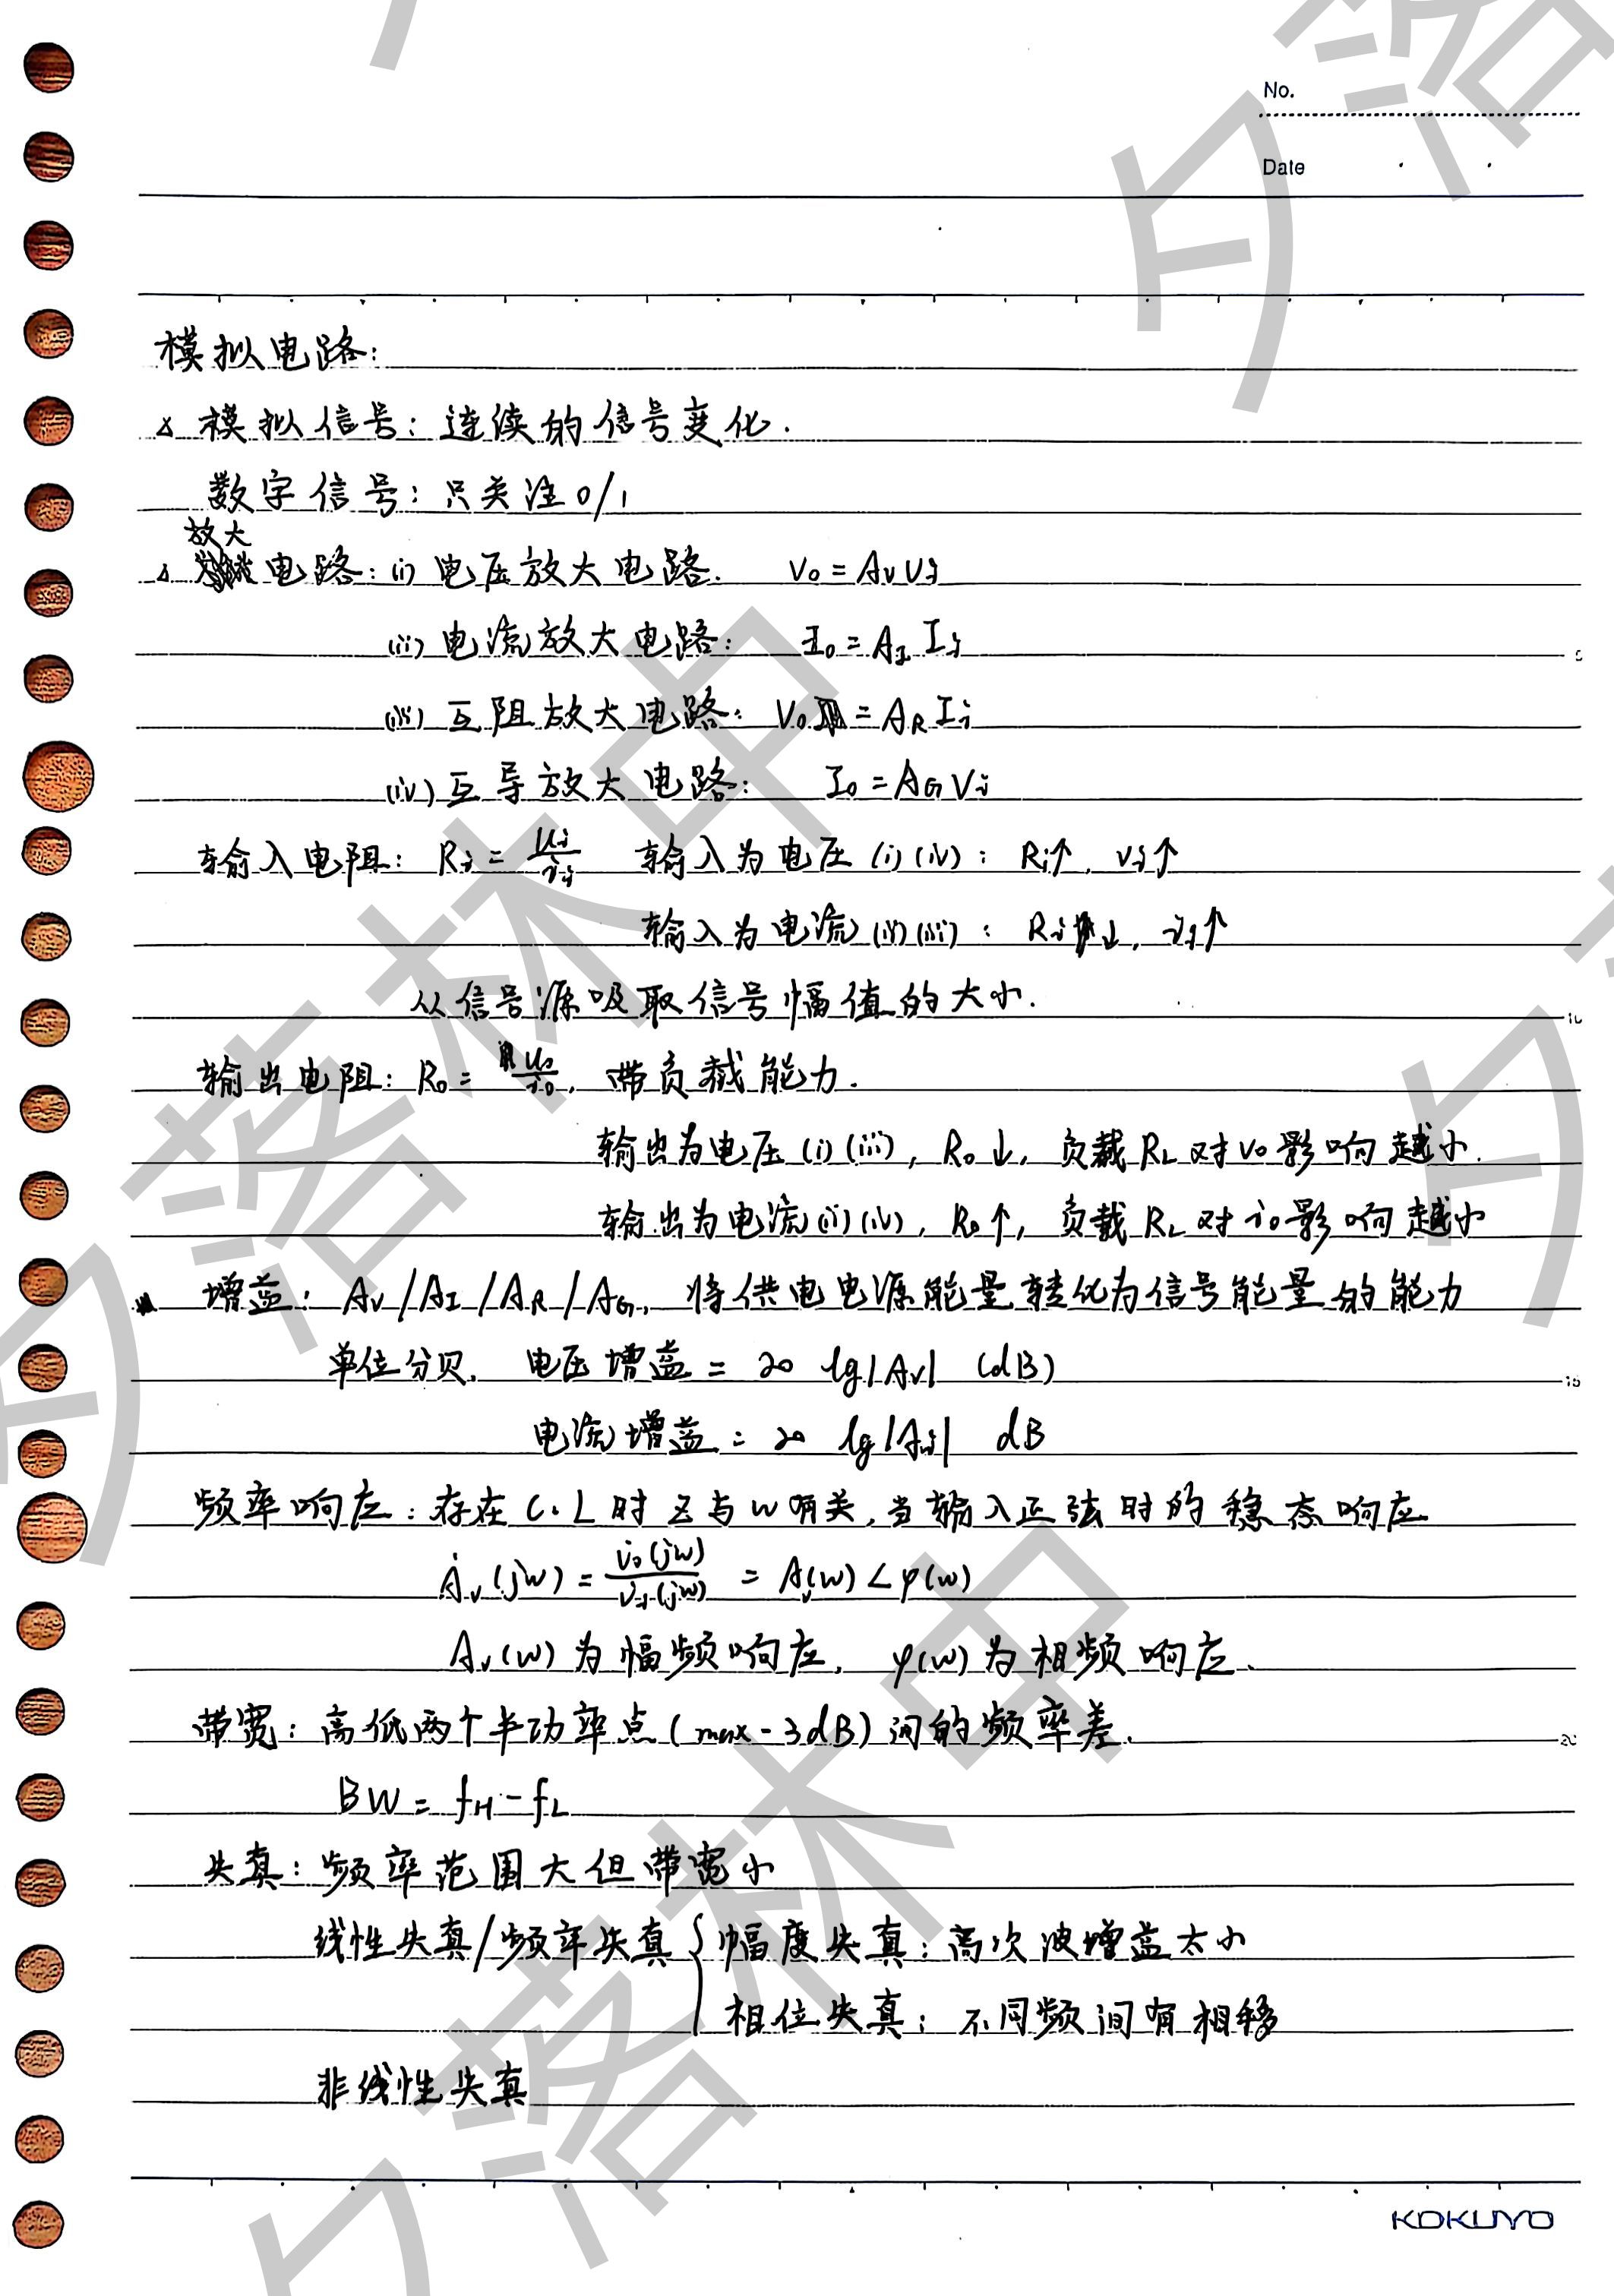 No.
Date
模拟电路:
△ 模拟信号: 连续的信号变化.
数字信号: 只关注0/1
放大
△ 电路: (i) 电压放大电路. Vo = AvVi
(ii) 电流放大电路: Io = AI Ii
(iii) 互阻放大电路: Vo = AR Ii
(iv) 互导放大电路: Io = AG Vi
输入电阻: Ri = ui/ii 输入为电压 (i) (iv) : Ri↑, vi↑
输入为电流 (ii) (iii) : Ri↓, ii↑
从信号源吸取信号幅值的大小.
输出电阻: Ro = uo/io, 带负载能力.
输出为电压 (i) (iii), Ro↓, 负载RL对vo影响越小.
输出为电流 (ii) (iv), Ro↑, 负载RL对io影响越小
增益: Av/AI/AR/AG, 将供电电源能量转化为信号能量的能力
单位分贝. 电压增益 = 20 lg|Av| (dB)
电流增益 = 20 lg|Ai| dB
频率响应: 存在C.L时Z与w有关, 当输入正弦时的稳态响应
Ȧv(jw) = V̇o(jw)/V̇i(jw) = Av(w)∠φ(w)
Av(w)为幅频响应, φ(w)为相频响应.
带宽: 高低两个半功率点(max-3dB)间的频率差.
BW = fH - fL
失真: 频率范围大但带宽小
线性失真/频率失真 { 幅度失真: 高次波增益太小
相位失真: 不同频间有相移
非线性失真
KOKUYO
夕落林中